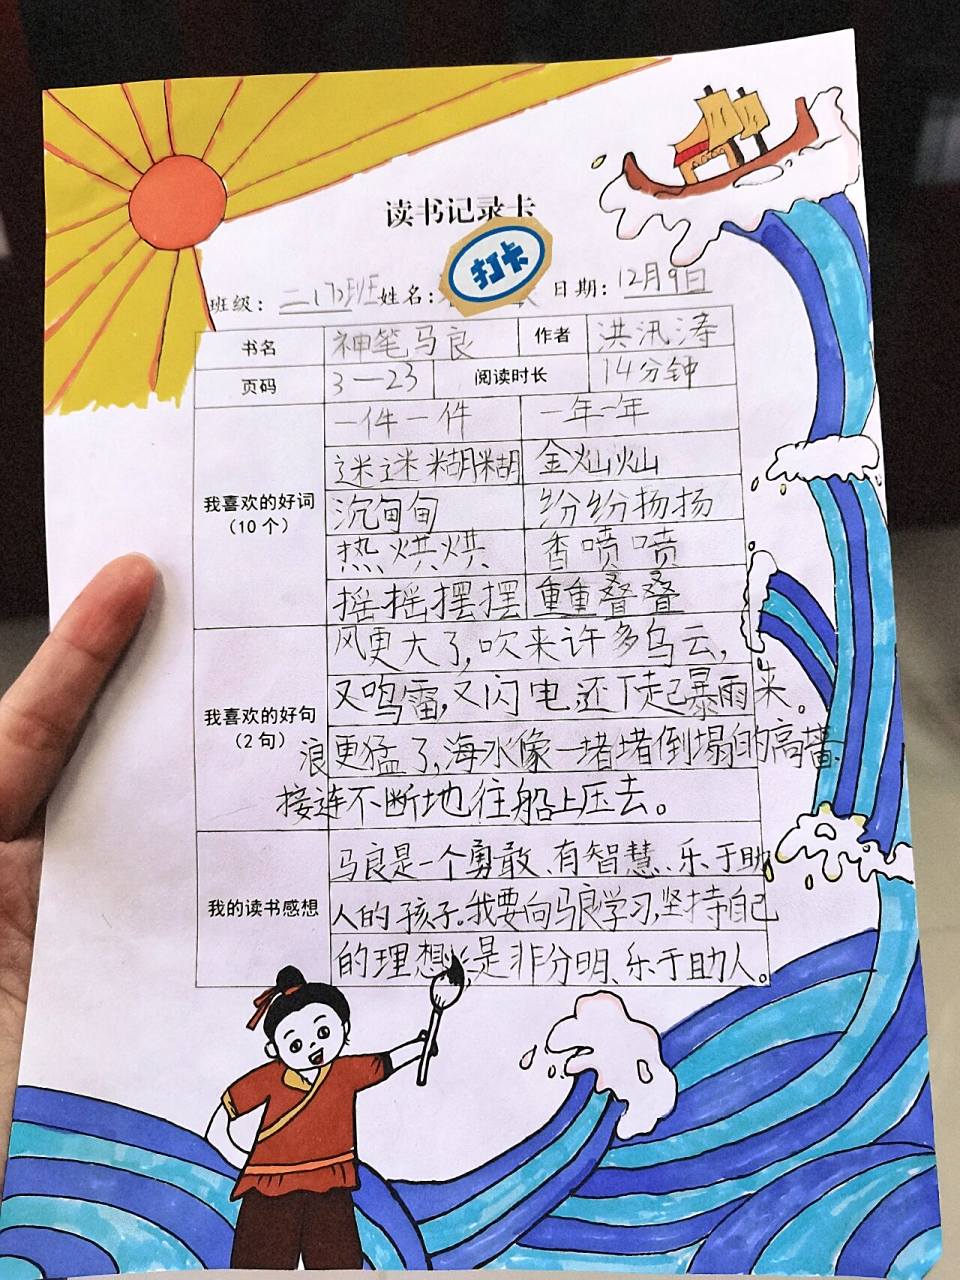 读书记录卡
打卡
班级：二(7)班 姓名： 日期：12月9日
书名 神笔马良 作者 洪汛涛
页码 3—23 阅读时长 14分钟
我喜欢的好词（10个）
一件一件 一年一年
迷迷糊糊 金灿灿
沉甸甸 纷纷扬扬
热烘烘 香喷喷
摇摇摆摆 重重叠叠
我喜欢的好句（2句）
风更大了，吹来许多乌云，
又鸣雷，又闪电，还下起暴雨来。
浪更猛了，海水像一堵堵倒塌的高墙，
接连不断地往船上压去。
我的读书感想
马良是一个勇敢、有智慧、乐于助
人的孩子。我要向马良学习，坚持自己
的理想，是非分明、乐于助人。